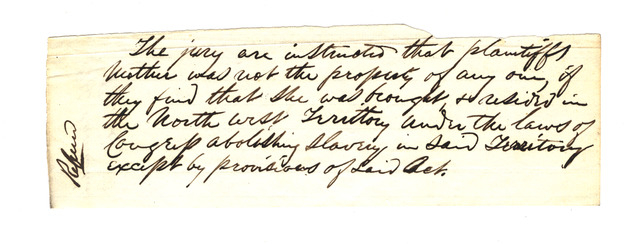 The jury are instructed that plaintiffs
Mother was not the property of any one, if
they find that she was brought, & resided in
the North west Territory under the laws of
Congress abolishing Slavery in said Territory
except by provisions of said Act.
Refused